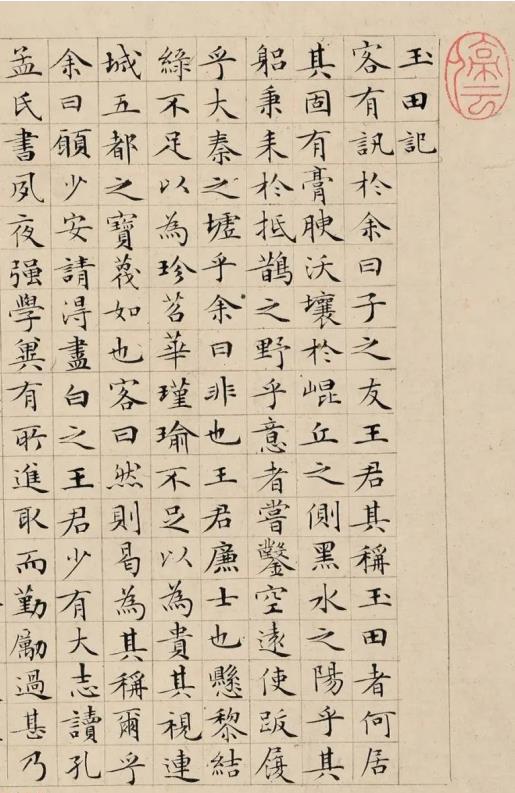 玉田記
客有訊於余曰子之友王君其稱玉田者何居
其固有膏腴沃壤於崐丘之側黑水之陽乎其
躬秉耒於抵鵲之野乎意者嘗鑿空遠使跋履
乎大秦之墟乎余曰非也王君廉士也懸黎結
綠不足以為珍苕華瑾瑜不足以為貴其視連
城五都之寶蔑如也客曰然則曷為其稱爾乎
余曰願少安請得盡白之王君少有大志讀孔
孟氏書夙夜强學兾有所進取而勤勵過甚乃
停雲